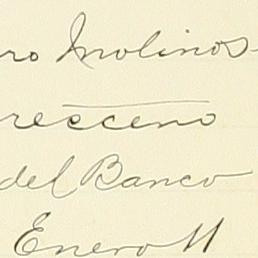 ro Molinos
recceno
del Banco
Enero 11